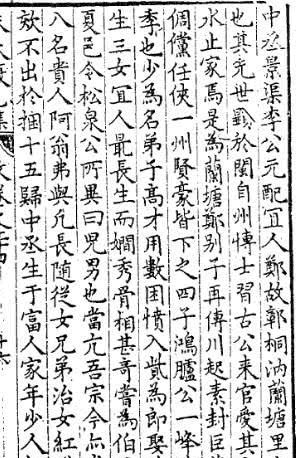 中丞景渠李公元配宜人鄭故鄣桐汭蘭塘里
也其先世顯於閩自州博士習古公来官愛其
水止家焉是為蘭塘鄭别子再傳川起素封臣
倜儻任俠一州賢豪皆下之四子鴻臚公一峰
季也少為名弟子高才用數困憤入貲為郎娶
生三女宜人最長生而嫺秀骨相甚竒嘗為伯
夏邑令松泉公所異曰兒男也當亢吾宗今
八名貴人阿翁弗與凡長随從女兄弟治女紅
欬不出於梱十五歸中丞生于富人家年少人